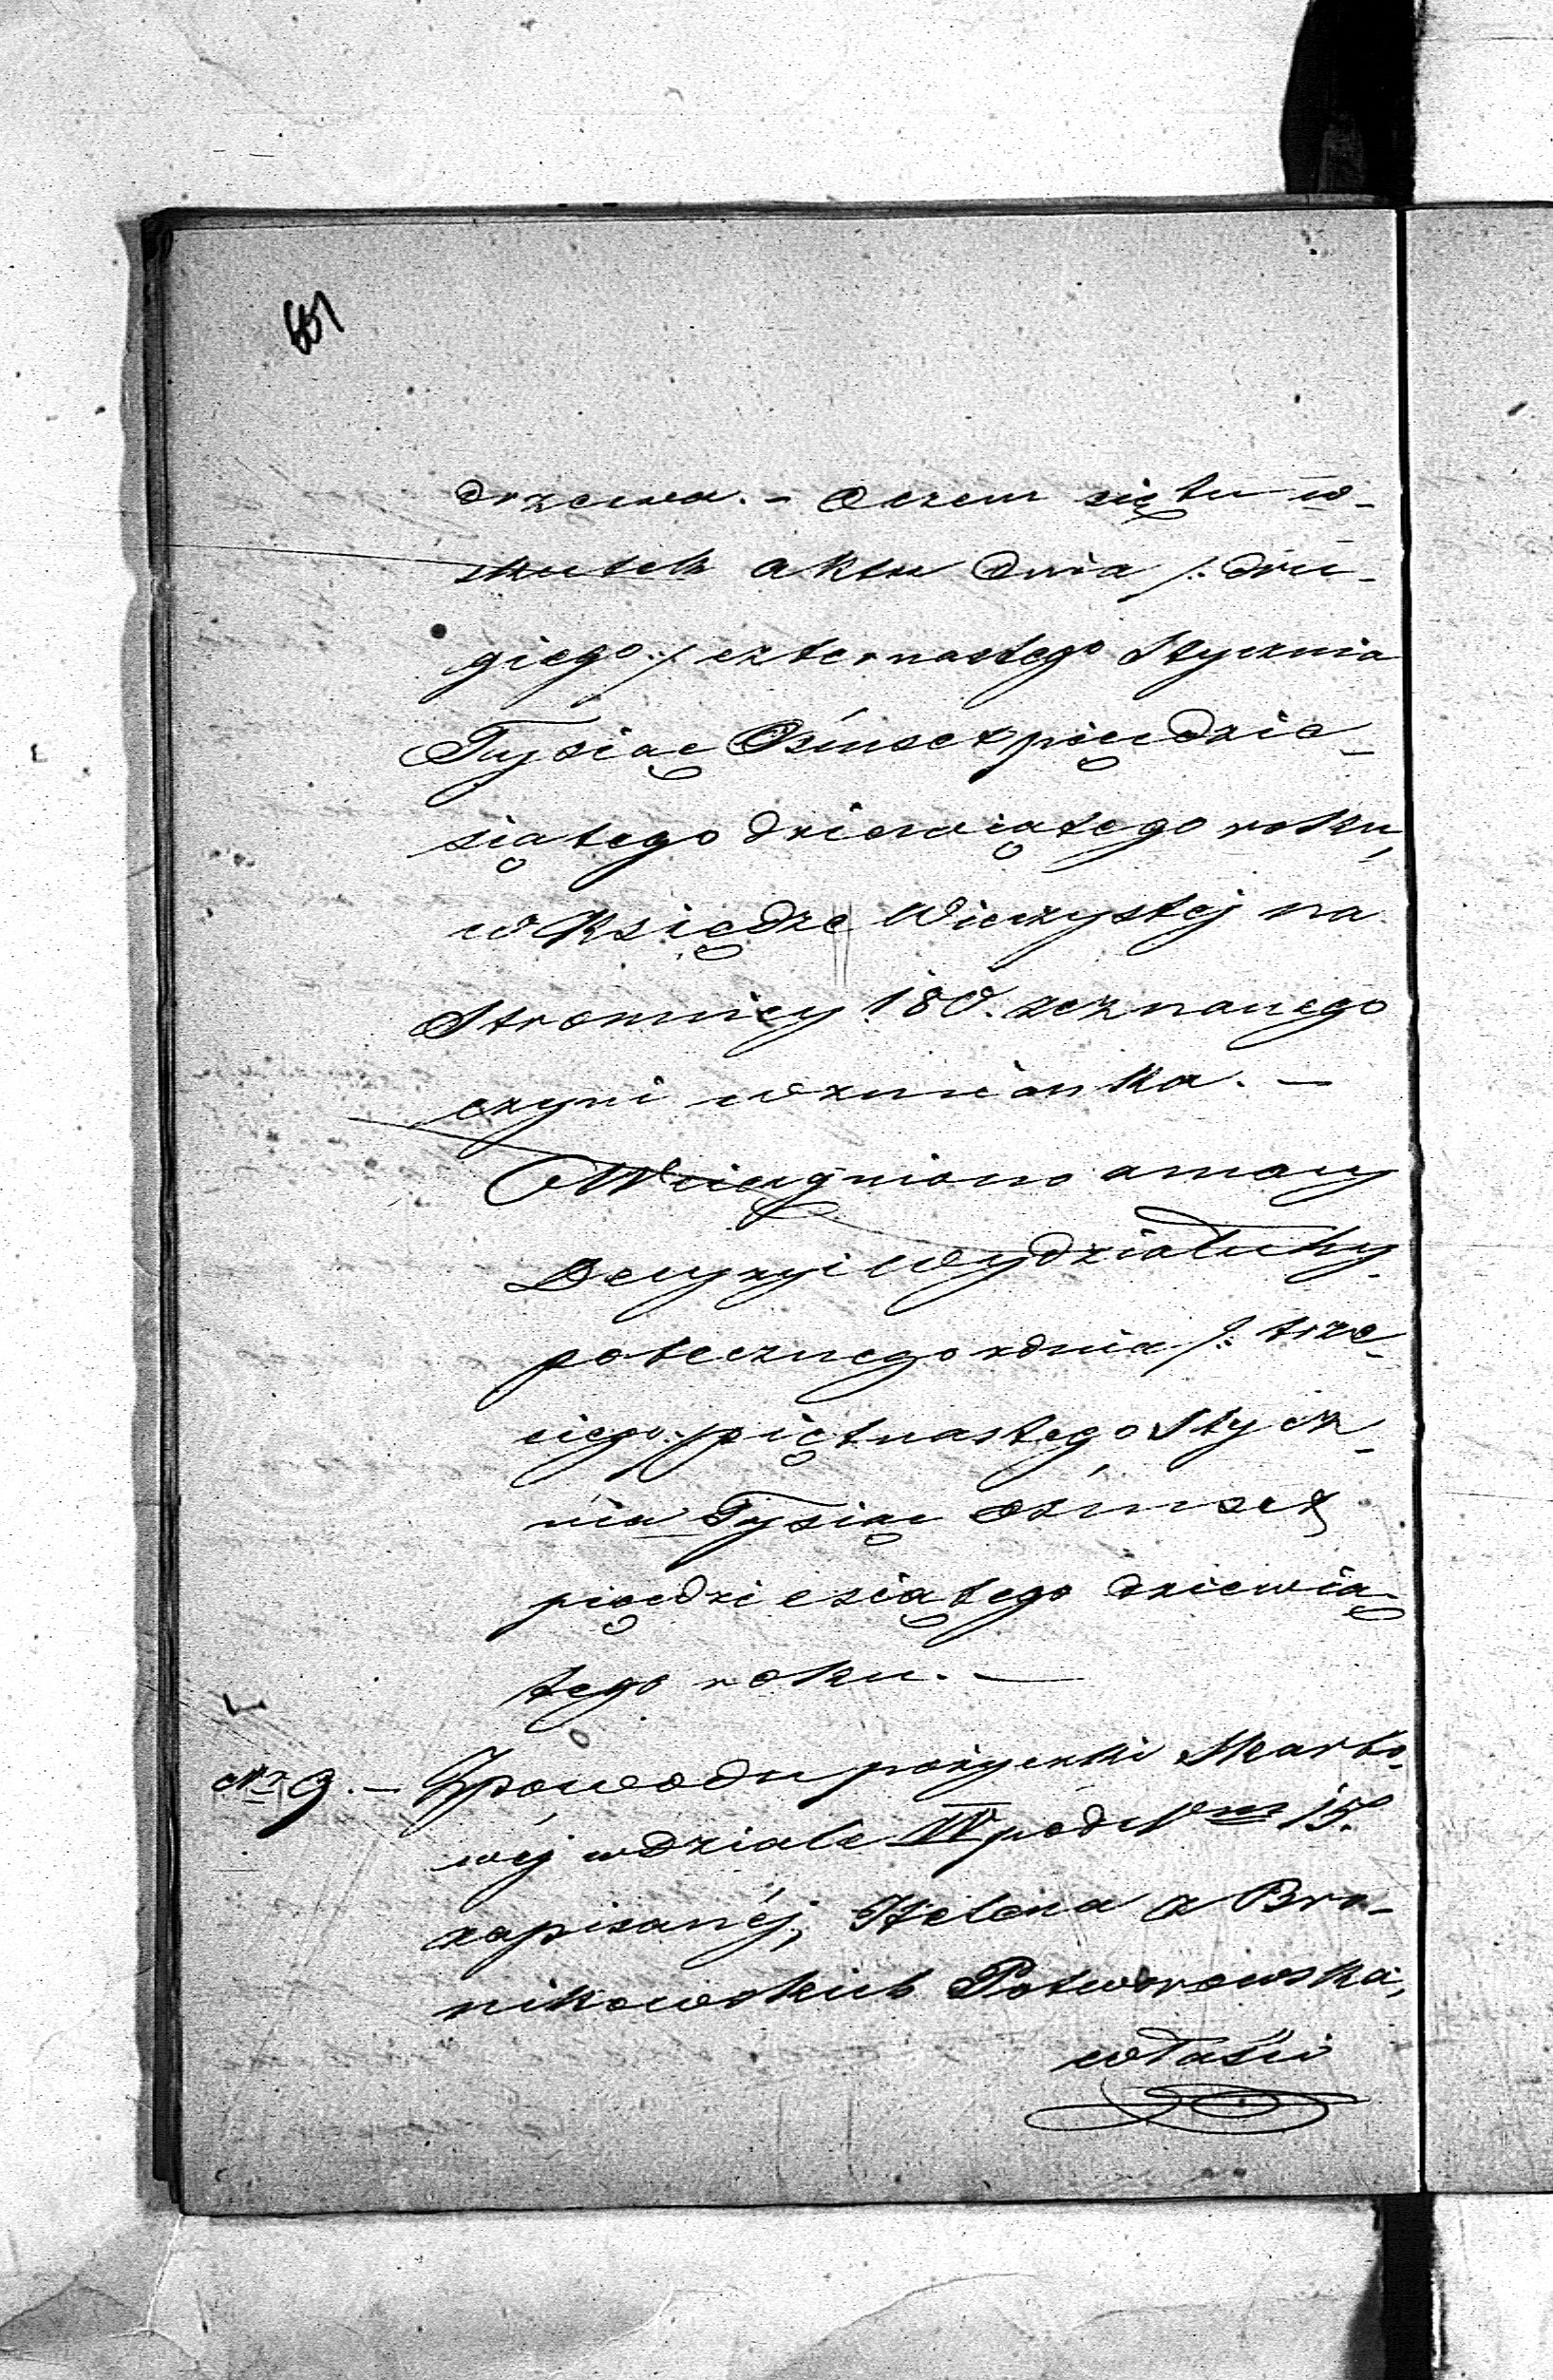 651
drzewa. – O czem się tu w-
skutek aktu dnia /: dru-
giego :/ czternastego Stycznia
Tysiąc Ośmset pięćdzie-
siątego dziewiątego roku,
w Księdze Wieczystej na
Stronnicy 180. zeznanego
czyni wzmianka. –
Wciągniono a mocy
Decyzyi Wydziału hy-
potecznego z dnia /: trze-
ciego :/ piętnastego Stycz-
nia Tysiąc Ośmset
pięćdziesiątego dziewią-
tego roku. —
Nr 9. – Z powodu pożyczki Skarbo-
wéj w dziale IV pod Nm 15.
zapisanéj, Helena z Bro-
nikowskich Potworowska,
właści